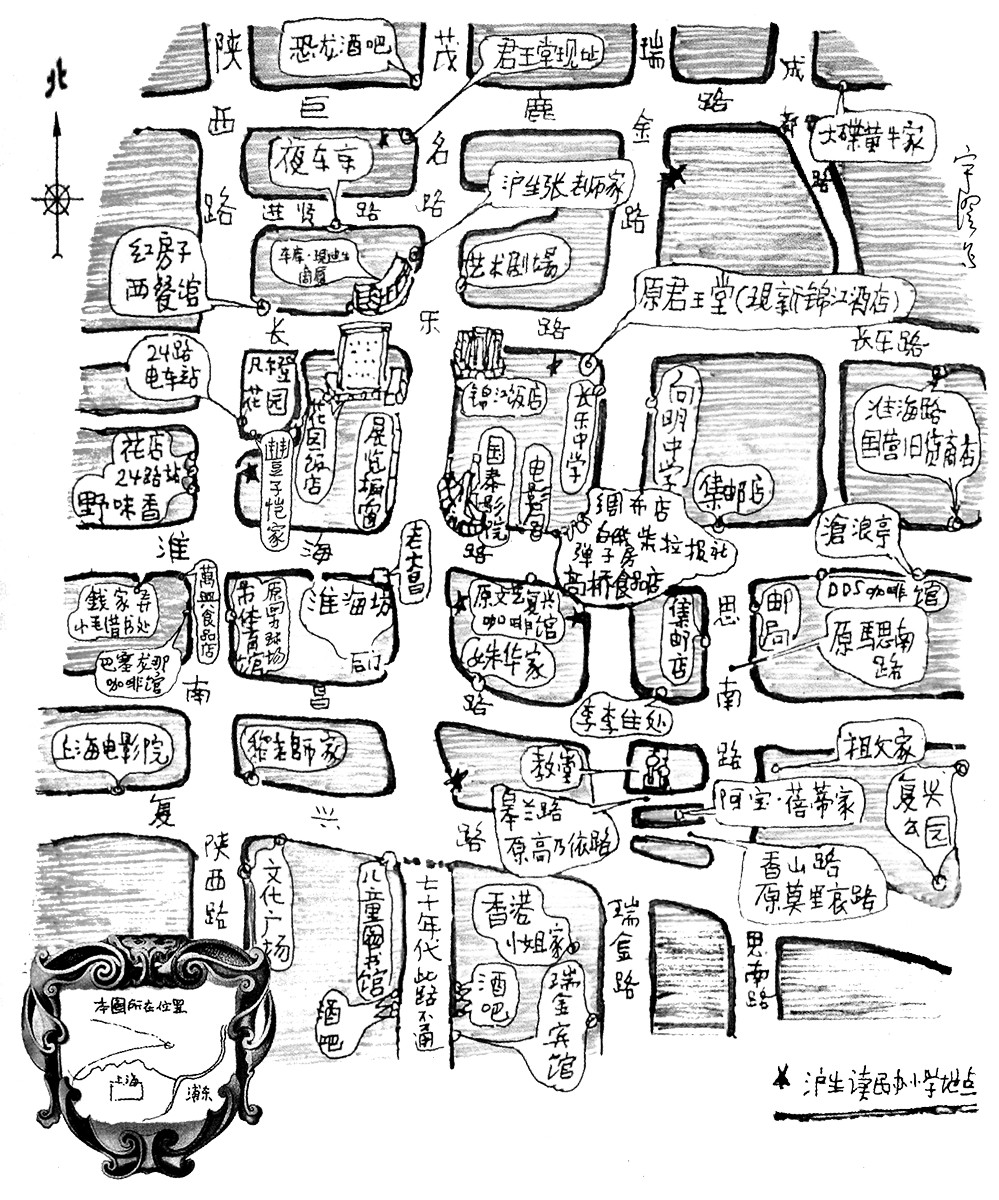 陕
西
路
恐龙酒吧
茂
名
路
君王堂现址
瑞
金
路
成
都
路
巨
鹿
路
大碟黄牛家
北
夜车京
沪生张老师家
进贤路
红房子
西餐馆
艺术剧場
原君王堂(現新錦江酒店)
长
乐
路
长乐路
24路
电车站
凡橙
花园
花园饭店
展览橱窗
錦江饭店
国泰影院
电影
长乐中学
向明中学
集邮店
淮海路
国营旧货商店
花店
24路站
野味香
豐子恺家
绸布店
白俄
弹子房
柴拉报社
高桥食品店
滄浪亭
淮
海
路
老大昌
錢家弄
小毛借书处
巴塞龙那
咖啡馆
萬興食品店
淮海坊
后门
原文艺复兴
咖啡馆
姝华家
集邮店
思
南
路
邮局
DDS咖啡馆
原馬思南
路
南
昌
路
李李住处
上海电影院
黎老師家
教堂
祖父家
阿宝·蓓蒂家
复兴
公园
皋兰路
原高乃依路
复
兴
路
香山路
原莫里哀路
陕
西
路
文化广场
儿童圖书馆
七十年代此路不通
香港
小姐家
酒吧
酒吧
瑞金宾馆
瑞金路
思南路
本圖所在位置
上海
浦东
沪生读民办小学地点